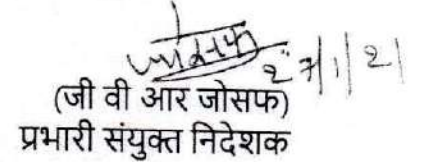 27/1/21
(जी वी आर जोसफ)
प्रभारी संयुक्त निदेशक